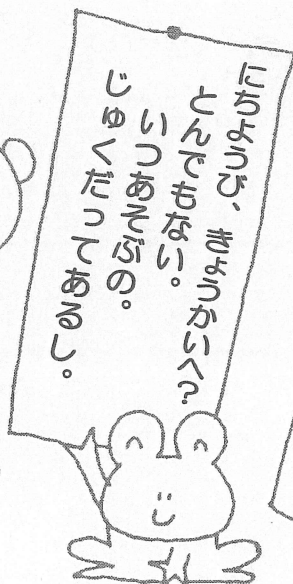 にちようび、きょうかいへ?
とんでもない。
いつあそぶの。
じゅくだってあるし。